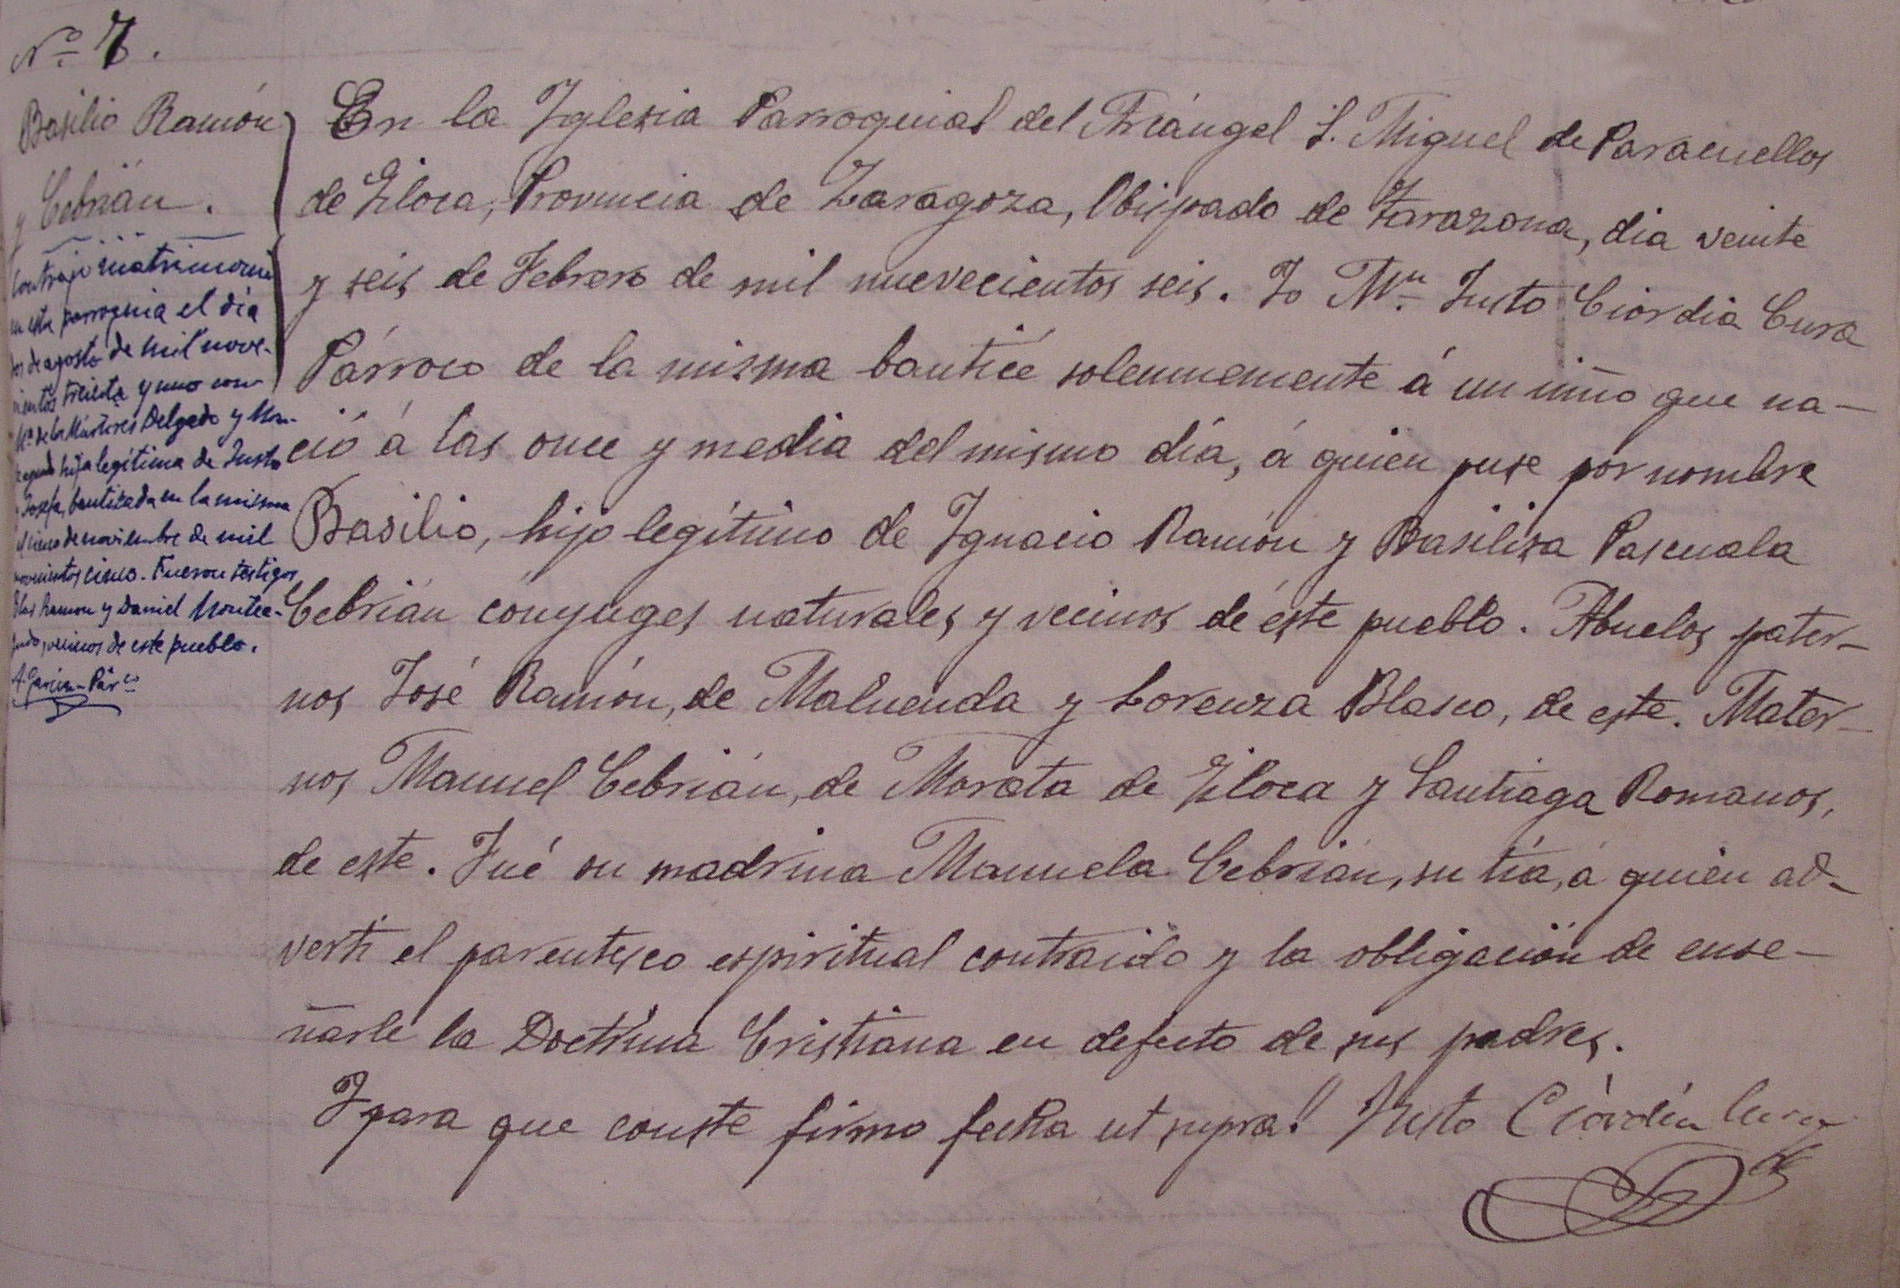 Nº 7.
Basilio Ramón
y Cebrián.
Contrajo matrimonio
en esta parroquia el día
dos de agosto de mil nove-
cientos treinta y uno con
Mª de los Mártires Delgado y Mon-
hija legítima de Justo
y Josefa, bautizada en la misma
de noviembre de mil
novecientos cinco. Fueron testigos
Blas Ramon y Daniel Montea-
gudo, vecinos de este pueblo.
A. García - Párco
En la Iglesia Parroquial del Arcángel S. Miguel de Paracuellos
de Jiloca, Provincia de Zaragoza, Obispado de Tarazona, dia veinte
y seis de Febrero de mil nuevecientos seis. Yo Mn. Justo Ciordia Cura
Párroco de la misma bauticé solemnemente á un niño que na-
ció á las once y media del mismo día, á quien puse por nombre
Basilio, hijo legítimo de Ignacio Ramón y Basilisa Pascuala
Cebrián cónyuges naturales y vecinos de éste pueblo. Abuelos pater-
nos José Ramón, de Maluenda y Lorenza Blasco, de este. Mater-
nos Manuel Cebrián, de Morata de Jiloca y Santiaga Romanos,
de este. Fué su madrina Manuela Cebrián, su tía, á quien ad-
vertí el parentesco espiritual contraido y la obligación de ense-
ñarle la Doctrina Cristiana en defecto de sus padres.
Y para que conste firmo fecha ut supra. Justo Ciordia Cura